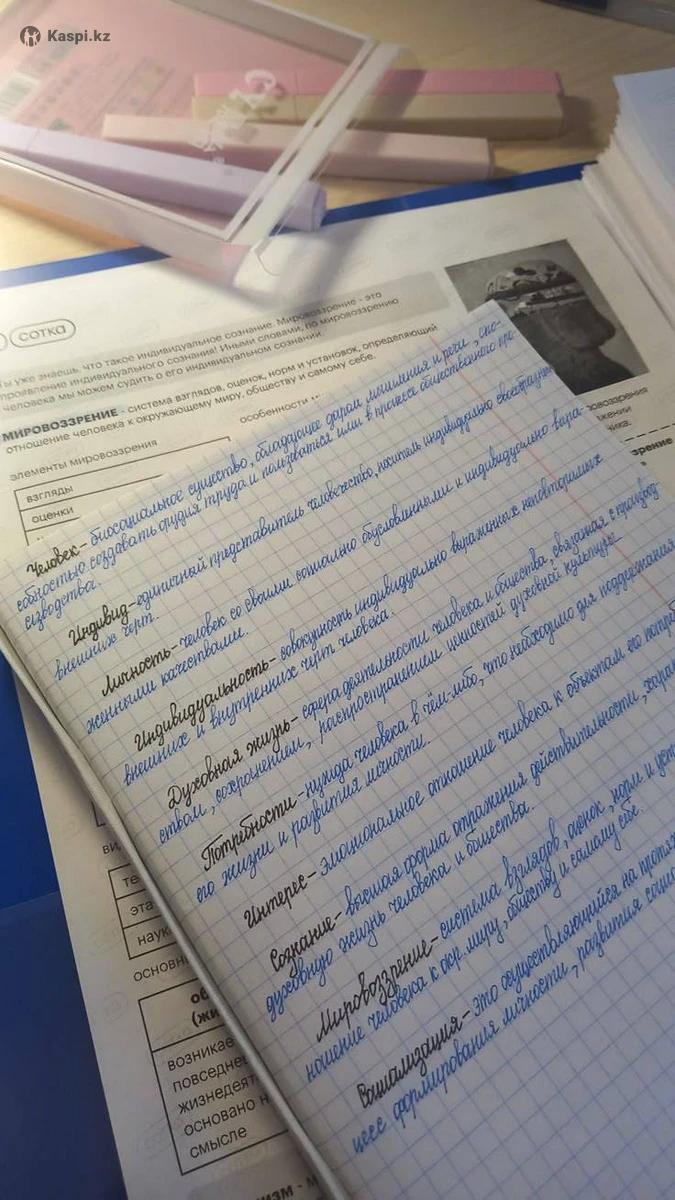 Kaspi.kz
сотка
Ты уже знаешь, что такое индивидуальное сознание. Мировоззрение - это
проявление индивидуального сознания! Иными словами, по мировоззрению
человека мы можем судить о его индивидуальном сознании.
МИРОВОЗЗРЕНИЕ - система взглядов, оценок, норм и установок, определяющий
отношение человека к окружающему миру, обществу и самому себе.
элементы мировоззрения
особенности
взгляды
оценки
Человек - биосоциальное существо, обладающее даром мышления и речи, спо-
собностью создавать орудия труда и пользоваться ими в процессе общественного про-
изводства.
Индивид - единичный представитель человечества, носитель индивидуально своеобразных
внешних черт.
Личность - человек со своими социально обусловленными и индивидуально выра-
женными качествами.
Индивидуальность - совокупность индивидуально выраженных неповторимых
внешних и внутренних черт человека.
Духовная жизнь - сфера деятельности человека и общества, связанная с производ-
ством, сохранением, распространением ценностей духовной культуры
Потребности - нужда человека в чём-либо, что необходимо для поддержания
его жизни и развития личности.
Интерес - эмоциональное отношение человека к объектам его
Сознание - высшая форма отражения действительности,
духовную жизнь человека и общества.
Мировоззрение - система взглядов, оценок, норм и
ношение человека к окр. миру, обществу и самому себе.
Социализация - это осуществляющийся на
цесс формирования личности, развития
основн
возникае
повседне
жизнедеят
основано н
смысле